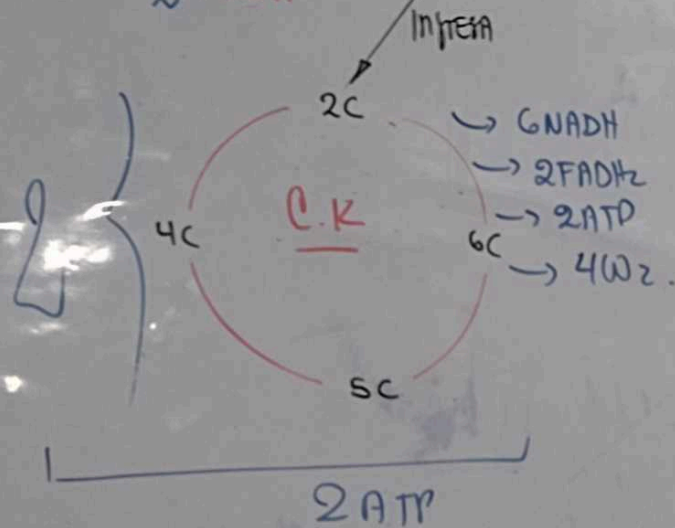 Ingresa
2C
→ 6NADH
→ 2FADH2
→ 2ATP
→ 4CO2.
C.K
4C
6C
5C
2
2ATP